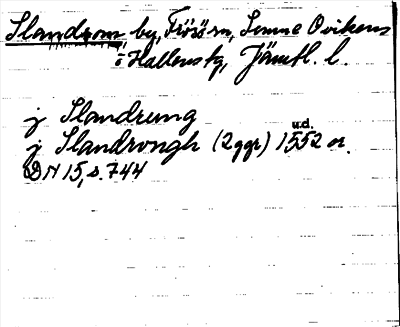 Slandrom, by, Frösön, Sunne Ovikens
i Hallens tg, Jämtl. l.
j Slandrung
u.d.
j Slandrongh (2 ggr) 1552 or.
DN 15, s. 744